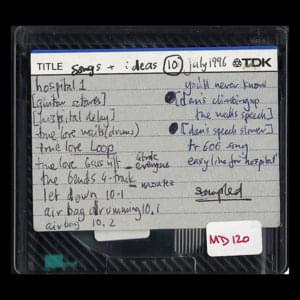 TITLE songs + ideas 10 july 1996 TDK
hospital 1
[guitar scones]
[hospital delay]
true love waits (drums)
true love Loop
true love bass riff
the bends 4-track
let down 10-1
airbag drumming 10.1
airbag 10.2
you'll never know
[dan's climbing up
the walls speech]
[dan's speech slower]
tr 606 song
easy line for 'hospital'
sampled
MD120